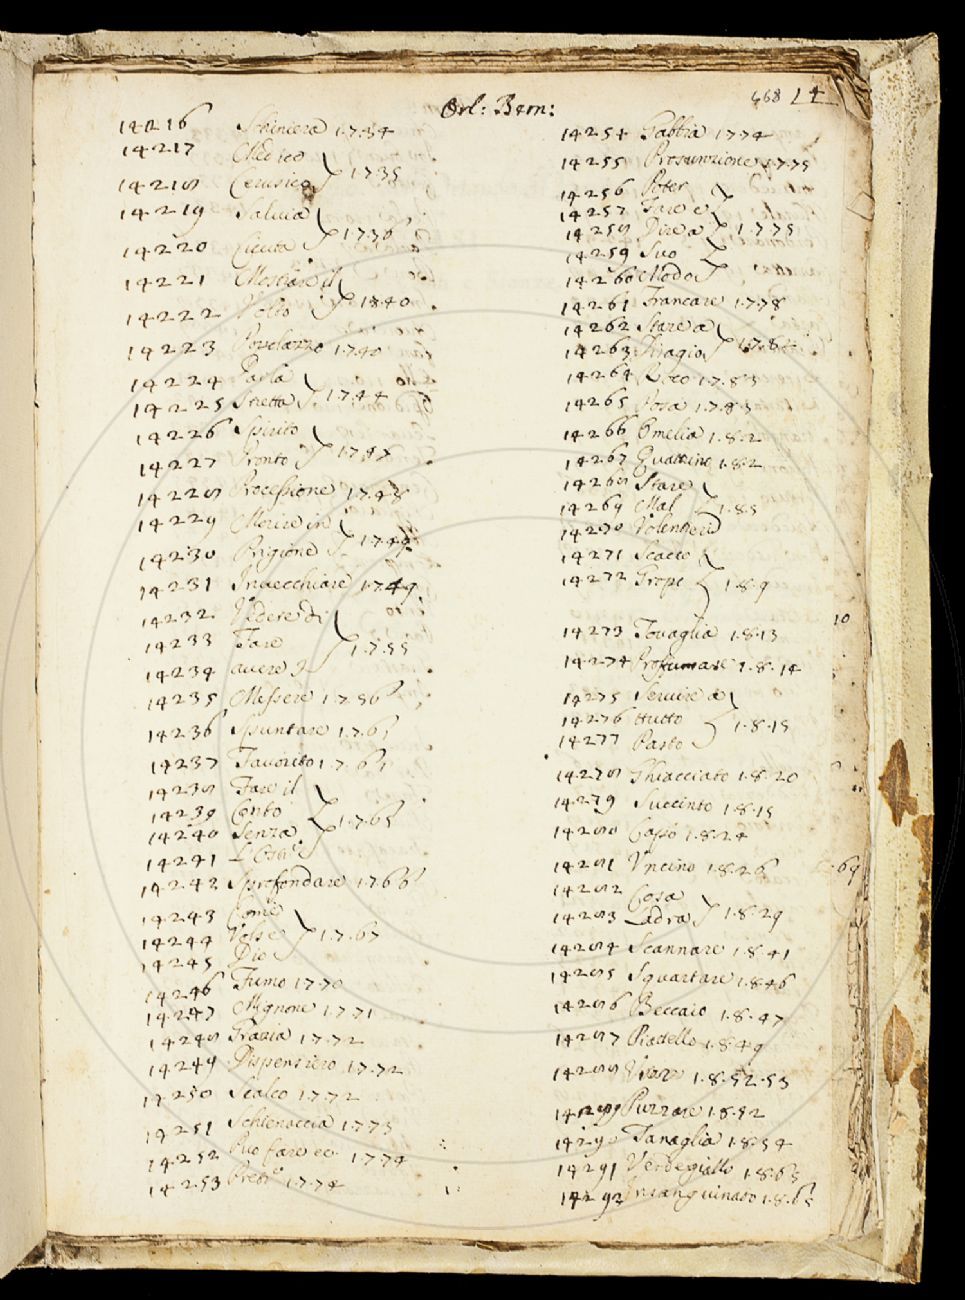 Orl: Bern:
468 14
14216 Schiniera 1.7.34
14217 Medico
14218 Cerusico 1.7.35
14219 Saluia
14220 Cicuta 1.7.36
14221 Mostiare il
14222 Volto 1.8.40
14223 Popolazzo 1.7.40
14224 Paola
14225 Stretta 1.7.44
14226 Spirito
14227 Pronto 1.7.47
14228 Processione 1.7.48
14229 Morire in
14230 Prigione 1.7.49
14231 Inuecchiare 1.7.49
14232 Vedere di
14233 Fare
14234 auere 1.7.55
14235 Messere 1.7.56
14236 Spuntare 1.7.6
14237 Fauorito 1.7.6
14238 Fare il
14239 Conto
14240 Senza 1.7.65
14241 L'Oste
14242 Sprofondare 1.7.66
14243 Come
14244 Volse 1.7.67
14245 Dio
14246 Fumo 1.7.70
14247 Mignone 1.7.71
14248 1.7.72
14249 Dispensiero 1.7.72
14250 Scalco 1.7.72
14251 Schienaccia 1.7.73
14252 Puo fare 1.7.74
14253 1.7.74
14254 Gabbia 1.7.74
14255 Prosunzione 1.7.75
14256 Poter
14257 Fare e
14258 Dire a 1.7.75
14259 Suo
14260 Modo
14261 Francare 1.7.78
14262 Stare a
14263 1.7.8
14264 1.7.83
14265 Posa 1.7.83
14266 Omelia 1.8.2
14267 Quattrino 1.8.2
14268 Stare
14269 Mal 1.8.5
14270 Volentieri
14271 Scacco
14272 1.8.9
14273 Touaglia 1.8.13
14274 Profumare 1.8.14
14275 Seruire a
14276 tutto 1.8.15
14277 Pasto
14278 Ghiacciato 1.8.20
14279 Succinto 1.8.15
14280 1.8.24
14281 Vncino 1.8.26
14282 Cosa
14283 Ladra 1.8.29
14284 Scannare 1.8.41
14285 Squartare 1.8.46
14286 Beccaio 1.8.47
14287 Piattello 1.8.49
14288 1.8.52.53
14289 Puzzare 1.8.52
14290 Tanaglia 1.8.54
14291 Verdegiallo 1.8.65
14292 Insanguinato 1.8.65